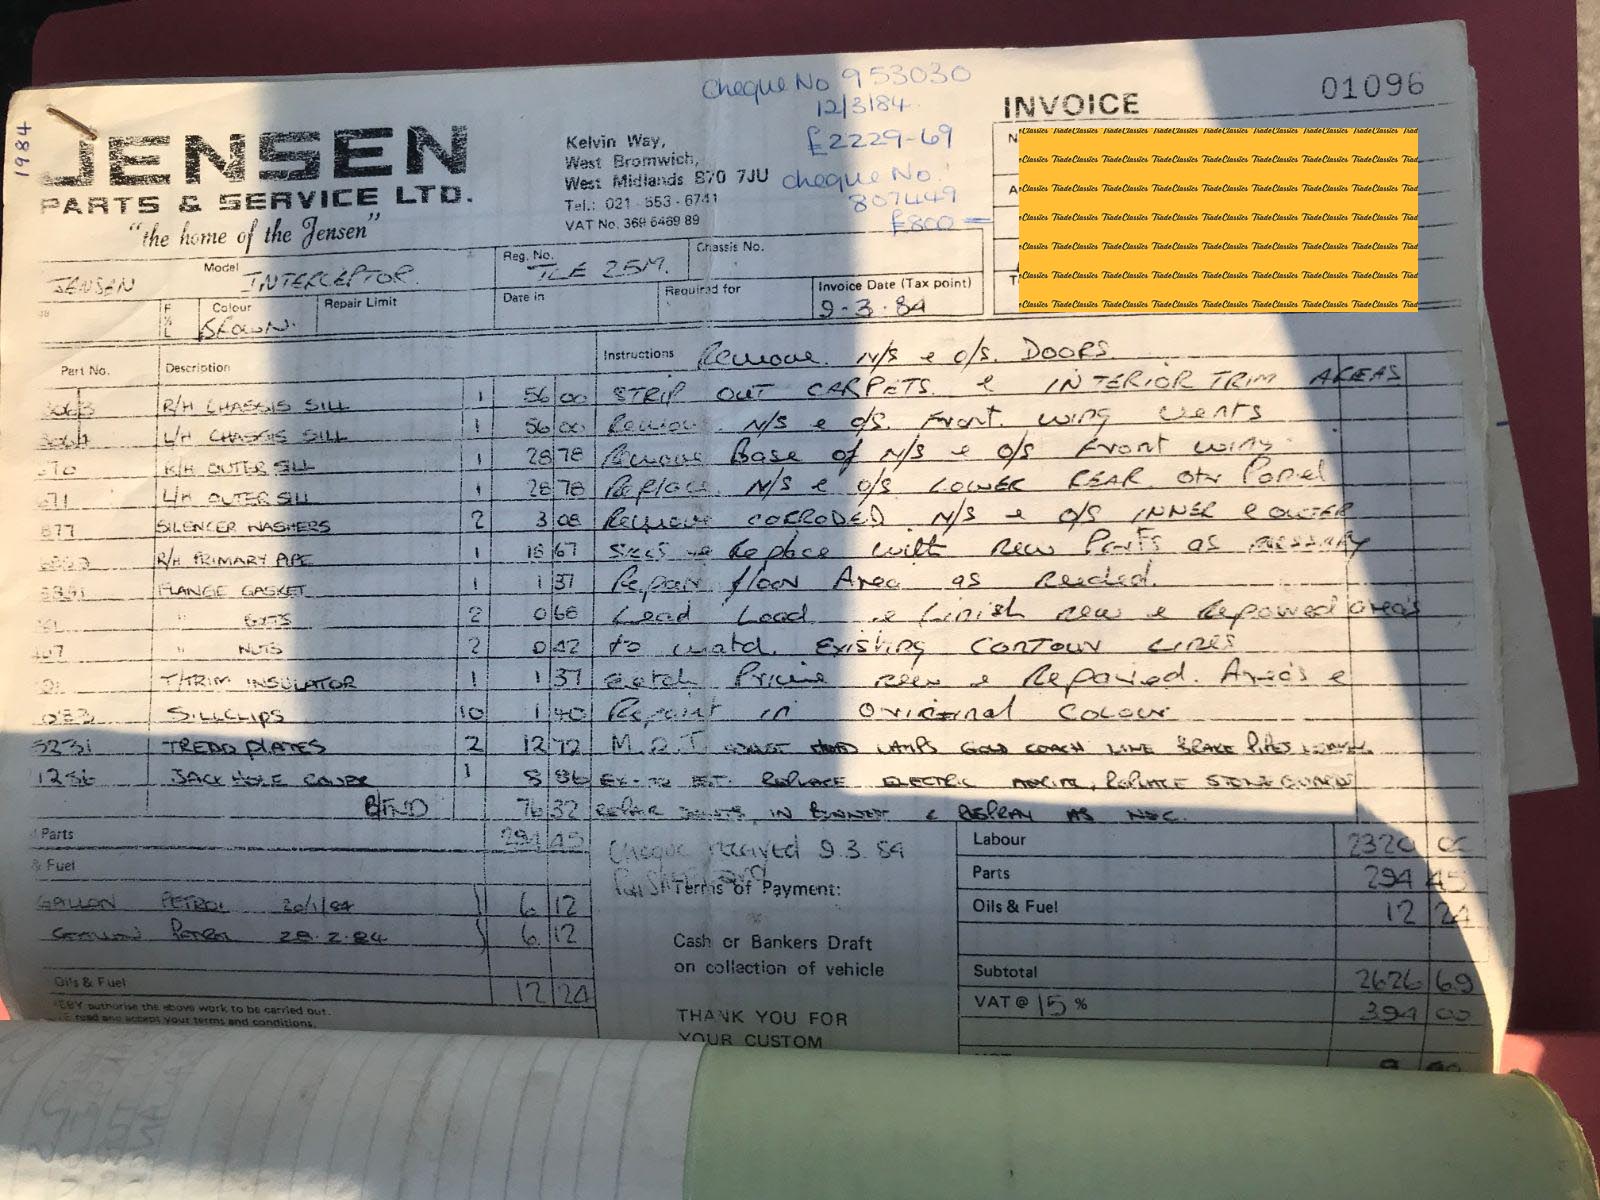 1984
Cheque No 953030
12/3/84
£2229-69
Cheque No.
807449
£800 =
INVOICE
01096
JENSEN
PARTS & SERVICE LTD.
"the home of the Jensen"
Kelvin Way,
West Bromwich,
West Midlands B70 7JU
Tel.: 021-553-6741
VAT No. 369 6469 89
TradeClassics
JENSEN
Model INTERCEPTOR.
Reg. No. TLE 25M.
Chassis No.
Colour BROWN.
Repair Limit
Date in
Required for
Invoice Date (Tax point)
9-3-84
Part No.
Description
Instructions Remove N/S & O/S. DOORS.
R/H CHASSIS SILL 1 56 00 STRIP OUT CARPETS & INTERIOR TRIM AREAS
L/H CHASSIS SILL 1 56 00 Remove N/S & O/S. Front wing vents
R/H OUTER SILL 1 28 78 Remove Base of N/S & O/S Front wing.
L/H OUTER SILL 1 28 78 Replace N/S & O/S LOWER REAR Qtr Panel
877 SILENCER WASHERS 2 3 08 Remove CORRODED N/S & O/S INNER & OUTER
R/H PRIMARY PIPE 1 18 67 Sills & Replace with new Parts as necessary
FLANGE GASKET 1 1 37 Repair floor Area as needed.
" 2 0 68 Lead Load & finish new & Repaired area's
" NUTS 2 0 42 to match Existing CONTOUR LINES
T/TRIM INSULATOR 1 1 37 Etch Prime new & Repaired. Area's &
SILL CLIPS 10 1 40 Repaint in Original Colour
TREAD PLATES 2 12 72 M.O.T. LAMPS GOLD COACH LINE BRAKE PIPES
JACK HOLE COVER 1 REPLACE ELECTRIC AERIAL, REPLACE STONEGUARD
B/FWD 76 32 REPAIR JOINTS IN BONNET & RESPRAY AS NEC.
Parts 294 45
& Fuel
GALLON PETROL 20/1/84 6 12
GALLON PETROL 28.2.84 6 12
Oils & Fuel 12 24
authorise the above work to be carried out.
read and accept your terms and conditions.
Cheque received 9.3.84
Terms of Payment:
Cash or Bankers Draft
on collection of vehicle
THANK YOU FOR
YOUR CUSTOM
Labour 2320 00
Parts 294 45
Oils & Fuel 12 24
Subtotal 2626 69
VAT @ 15 % 394 00